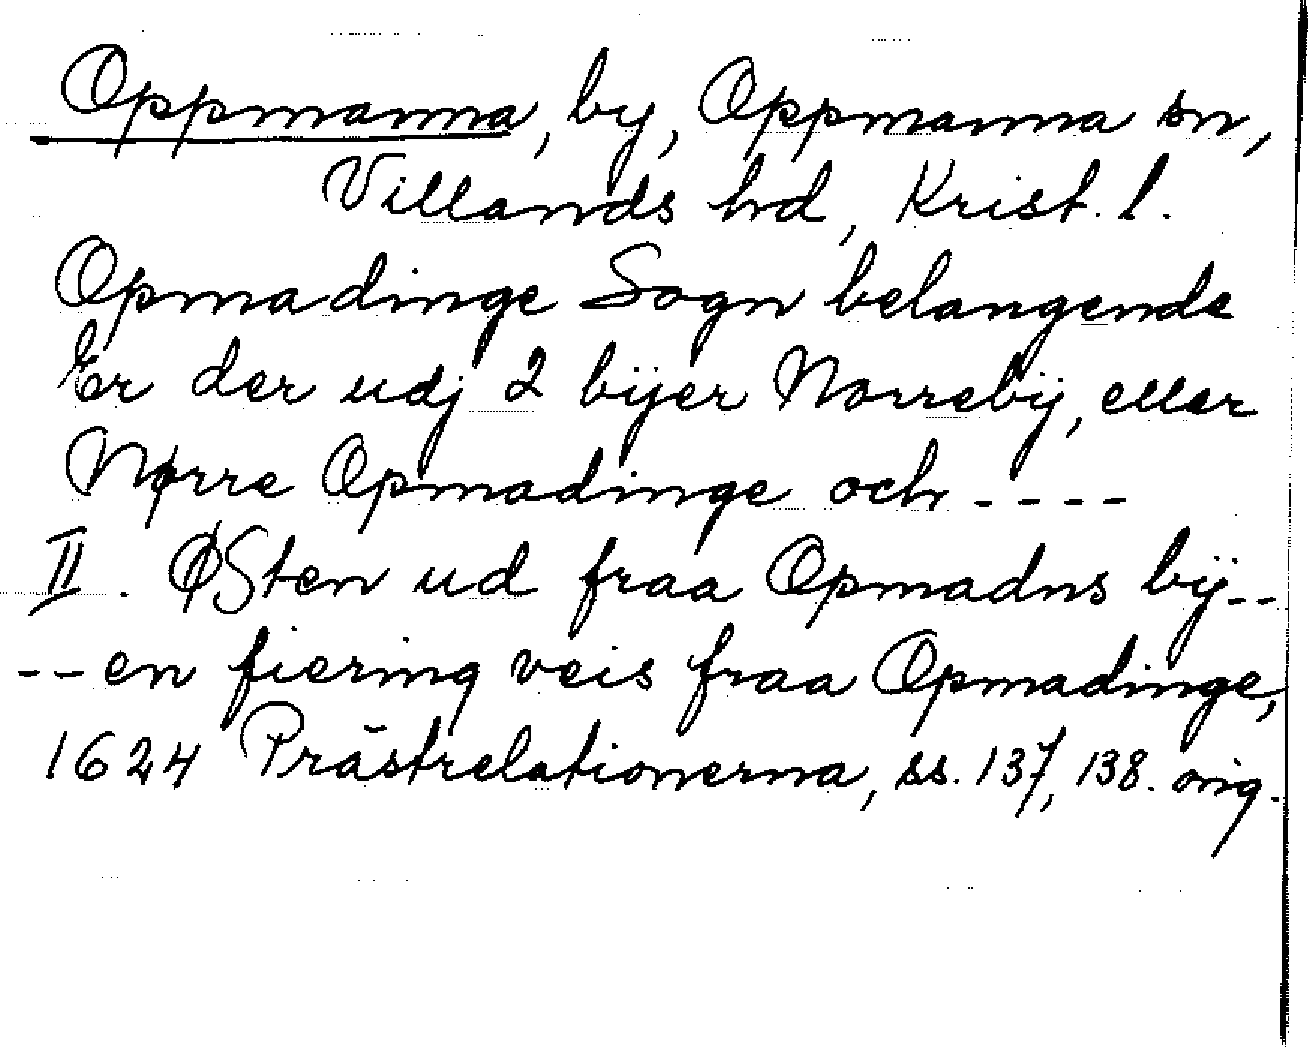 Oppmanna, by, Oppmanna sn,
Villands hd, Krist. l.
Opmadinge Sogn belangende
Er der udj 2 bÿer Norrebÿ, eller
Nørre Opmadinge och ----
II. ØSten ud fraa Opmadns bÿ--
--en fiering veis fraa Opmadinge,
1624 Prästrelationerna, ss. 137, 138. orig.